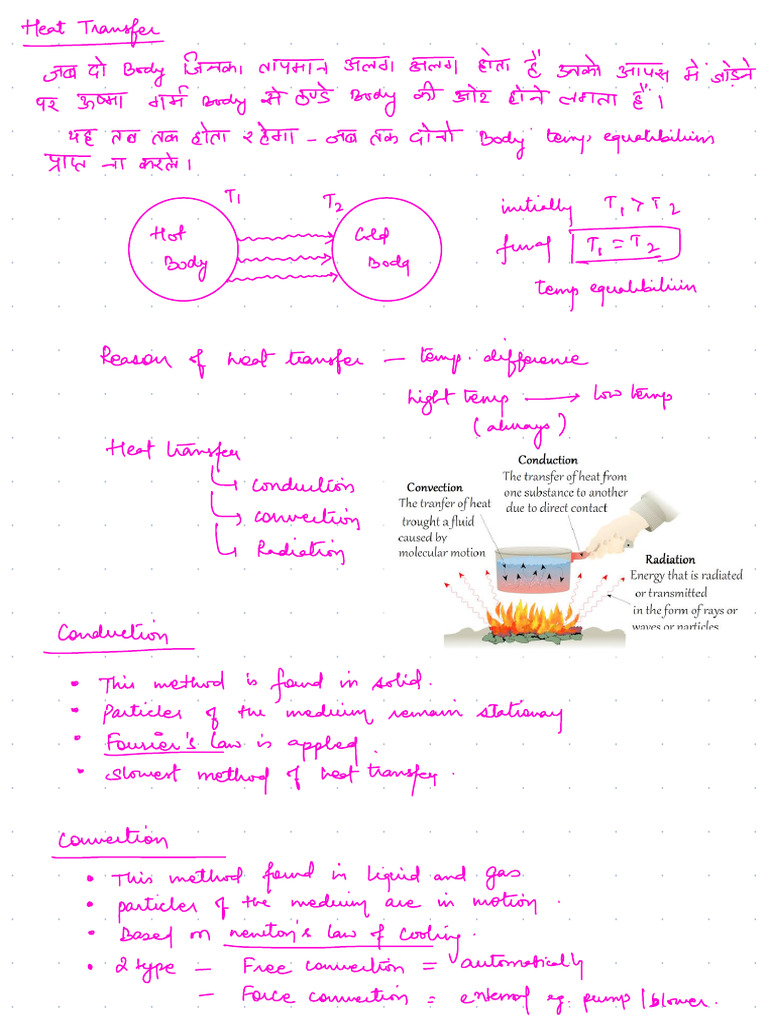 Heat Transfer
जब दो Body जिनका तापमान अलग अलग होता हैं उनको आपस में जोड़ने
पर ऊष्मा गर्म Body से ठण्डे Body की ओर होने लगता हैं।
यह तब तक होता रहेगा - जब तक दोनो Body temp. equalibilium
प्राप्त ना करले।
T1 T2
Hot Body
Cold Body
initially T1 > T2
final T1 = T2
temp equalibilium
Reason of heat transfer — temp. difference
hight temp → low temp
(always)
Heat transfer
conduction
convection
Radiation
Conduction
The transfer of heat from
one substance to another
due to direct contact
Convection
The tranfer of heat
trought a fluid
caused by
molecular motion
Radiation
Energy that is radiated
or transmitted
in the form of rays or
waves or particles
Conduction
• This method is found in solid.
• Particles of the medium remain stationay
• Fourier's Law is applied.
• Slowest method of heat transfer.
Convection
• This method found in liquid and gas
• particles of the medium are in motion.
• Based on newton's law of cooling.
• 2 type — Free convection = automatically
— Force convection = external eg. pump/blower.